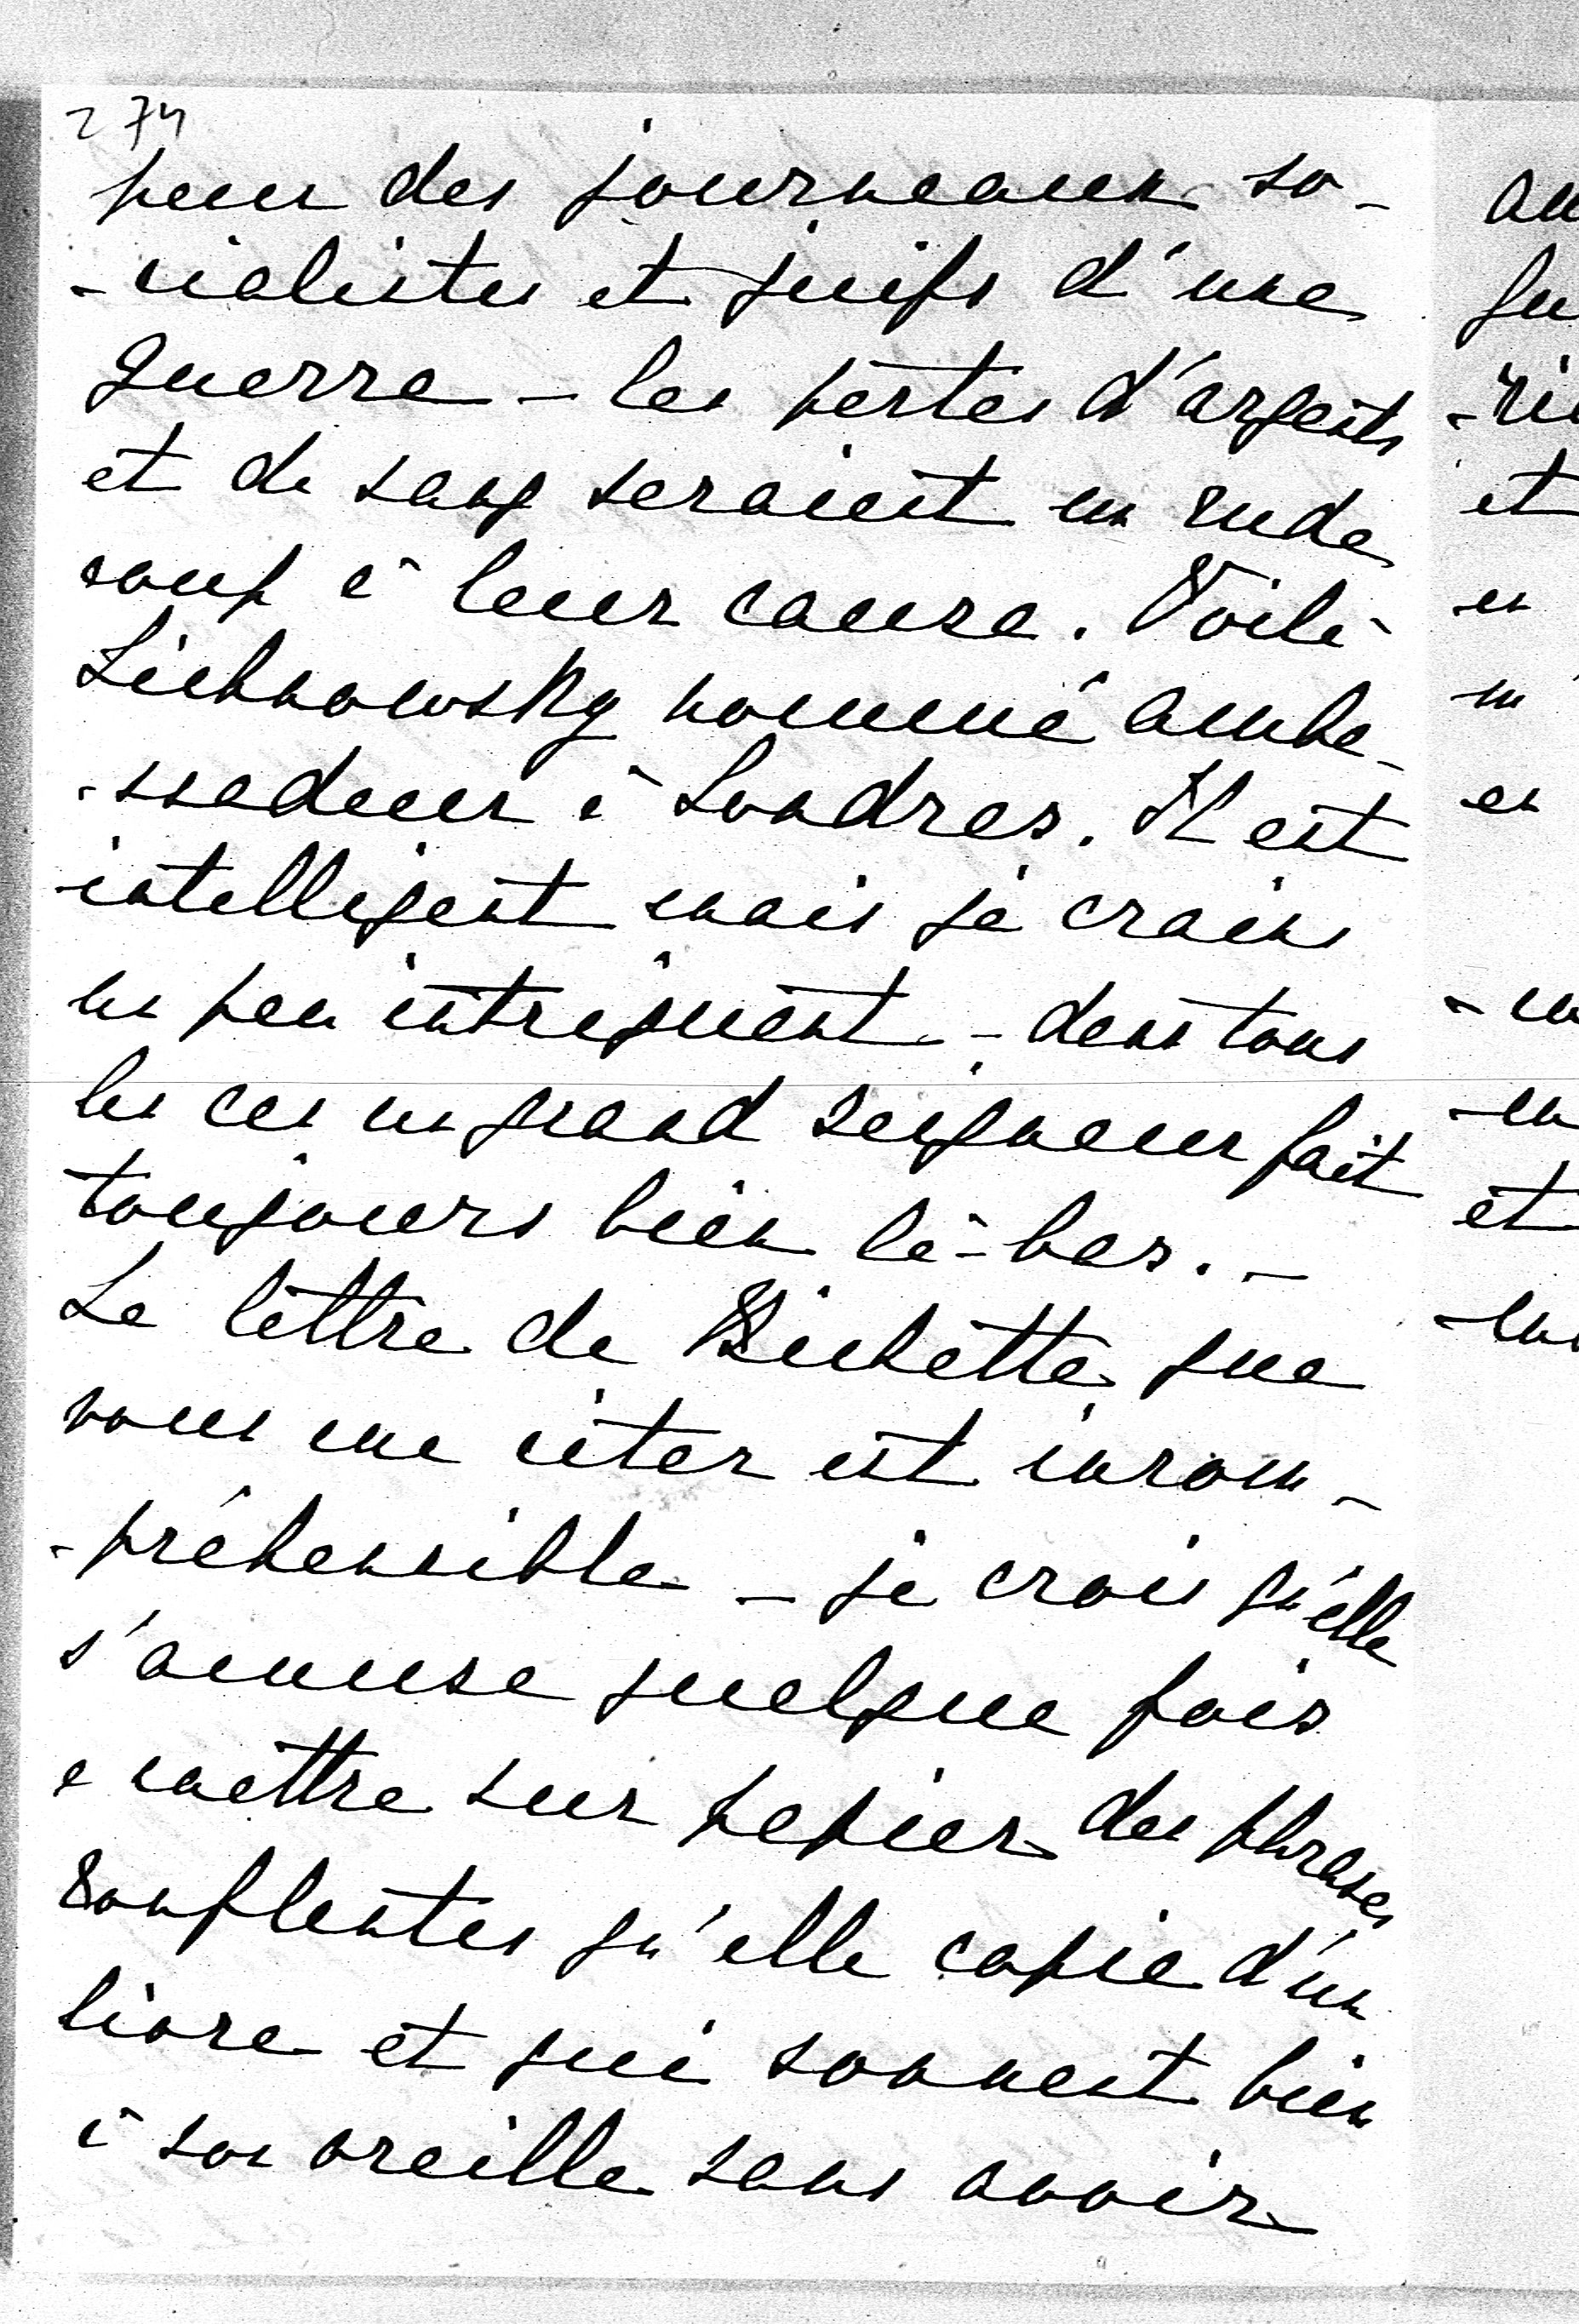 274
peur des journeaux so-
-cialistes et juifs d'une
guerre - les pertes d'argents
et de sang seraient un rude
coup à leur cause. Voilà
Lichnowsky nommé amba-
-ssadeur à Londres. Il est
intelligent mais je crains
un peu intriguant - dans tous
les cas un grand seigneur fait
toujours bien là-bas. -
La lettre de Bichette que
vous me citez est incom-
-préhensible - je crois qu'elle
s'amuse quelque fois
a mettre sur papier des phrases
ronflantes qu'elle copie d'un
livre et qui sonnent bien
à son oreille sans avoir